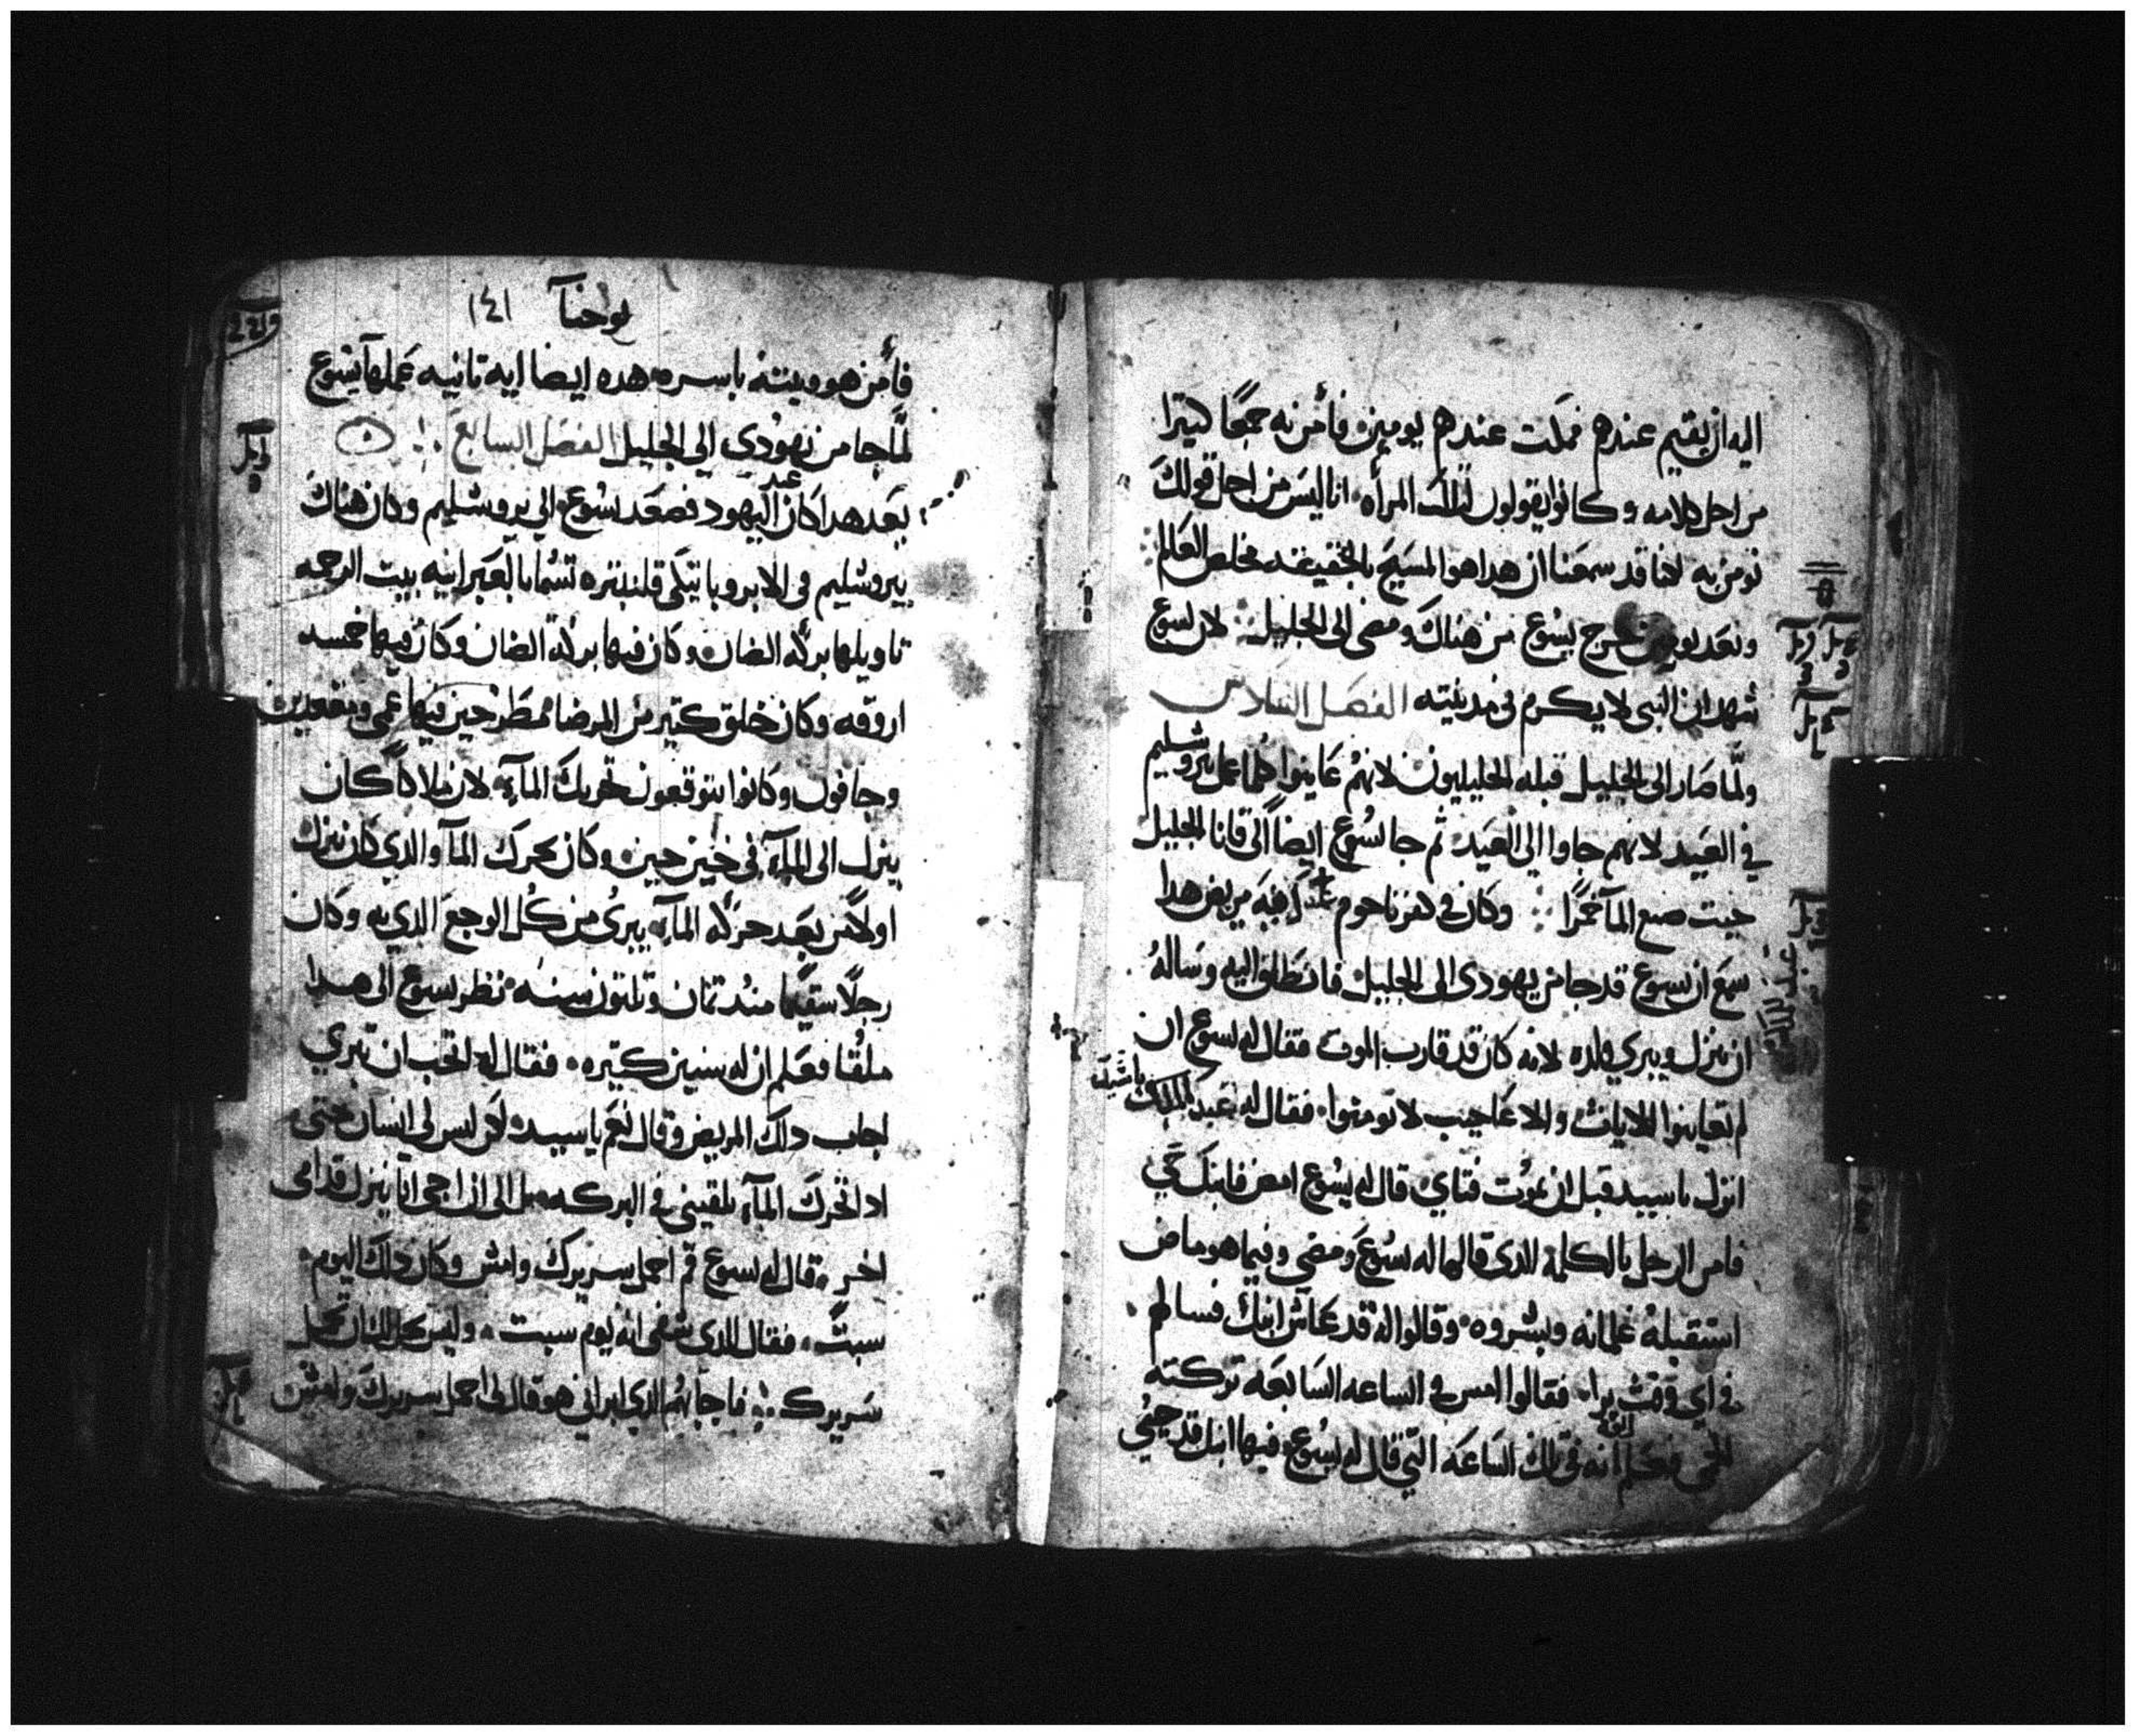 اليه ان يقيم عندهم فمكت عندهم يومين فأمن به جمعًا كتيرا
من اجل كلامه وكانوا يقولون لتلك المرأه اننا ليس من اجل قولك
نومن به لاننا قد سمعنا ان هدا هو المسيح بالحقيقه مخلص العالم
وبعد يومين خرج يسوع من هناك ومضى الى الجليل لان يسوع
شهد ان النبي لا يكرم في مدينته الفصل السادس
ولما صار الى الجليل قبله الجليليون لانهم عاينوا كلما عمل بيروشليم
في العيد لانهم جاوا الى العيد ثم جا يسوع ايضاً الى قانا الجليل
حيت صنع المآ خمرًا وكان في كفرناحوم مريض هدا
سمع ان يسوع قد جا من يهودى الى الجليل فانطلق اليه وساله
ان ينزل ويبري ولده لانه كان قد قارب الموت فقال له يسوع ان
لم تعاينوا الايات والاعاجيب لا تومنوا فقال له عبد الملك
انزل يا سيد قبل ان يموت فتاي قال له يسوع امض فابنك حي
فامن الرجل بالكلمة الدى قالها له يسوع ومضى وفيما هو ماض
استقبله غلمانه وبشروه وقالوا له قد عاش ابنك فسالهم
في اي وقت برا فقالوا امس في الساعه السابعه تركته
الحمى فعلم ابوه انه في تلك الساعه التي قال له يسوع فيها ابنك قد حيي
عبد الملك
يوحنا ١٤١
فأمن هو وبيته باسره هده ايضا ايه تانيه عملها يسوع
لما جا من يهودى الى الجليل الفصل السابع
بعد هدا كان عيد اليهود فصعد يسوع الى يروشليم وكان هناك
بيروشليم في الابروباتيكى قلنبتره تسما بالعبرانيه بيت الرحمه
تاويلها بركة الضان وكان فيها بركة الضان وكان فيها خمسه
اروقه وكان خلق كتير من المرضا مطرحين فيها عمي ومقعدين
وجافون وكانوا يتوقعون تحريك المآء لان ملاكاً كان
ينزل الى المآء في حين حين وكان يحرك المآ والدي كان ينزل
اولاً من بعد حركة المآء يبرى من كل الوجع الدي به وكان
رجلاً سقيمًا مند تمان وتلتون سنه نظر يسوع الى هدا
ملقًا فعلم ان له سنين كتيره فقال له اتحب ان تبري
اجاب دلك المريض وقال نعم يا سيد لكن ليس لي انسان حتى
ادا تحرك المآء يلقيني في البركه بل الى ان اجي انا ينزل قدامى
اخر قال له يسوع قم احمل سريرك وامش وكان دلك اليوم
سبتً فقال للدي شفي انه يوم سبت وليس يحل لك ان تحمل
سريرك فاجابهم الدي ابراني هو قال لي احمل سريرك وامش